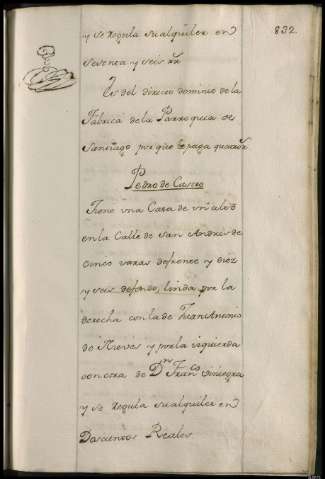 832
y se regula su alquiler en
sesenta y seis rs
Es del directo dominio de la
Fabrica de la Parroquia de
Santiago por que le paga quatro rs
Pedro de Castro
Tiene una Casa de un alto
en la Calle de San Andres de
cinco varas de frente y diez
y seis de fondo, linda por la
derecha con la de Juan Antonio
de Nieves y por la izquierda
con otra de Dn Franco
y se regula su alquiler en
Doscientos Reales